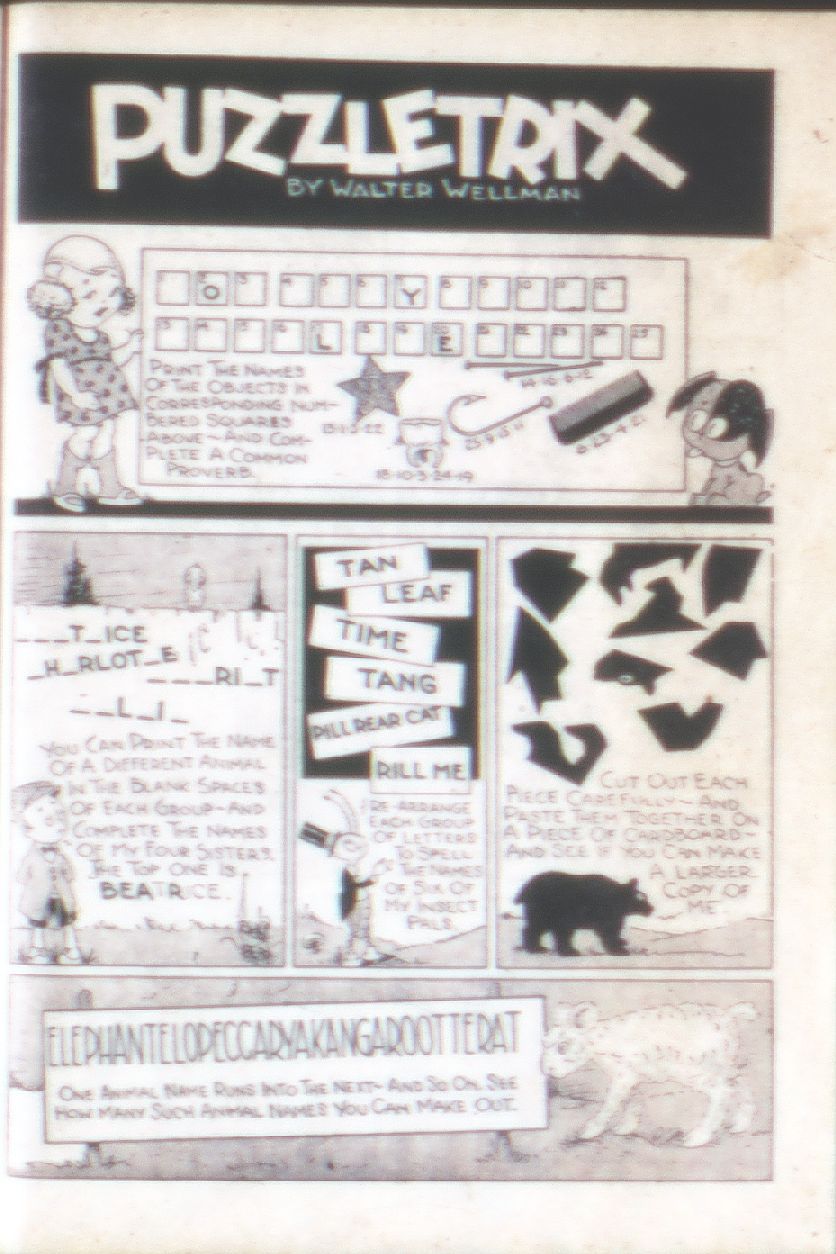 PUZZLETRIX
BY WALTER WELLMAN
O Y
L E
PRINT THE NAMES
OF THE OBJECTS IN
CORRESPONDING NUM-
BERED SQUARES
ABOVE~AND COM-
PLETE A COMMON
PROVERB.
18-10-3-24-19
_ _ _T_ICE
_H_RLOT_E
_ _ _ _RI_T
_ _L_I_
YOU CAN PRINT THE NAME
OF A DIFFERENT ANIMAL
IN THE BLANK SPACES
OF EACH GROUP~AND
COMPLETE THE NAMES
OF MY FOUR SISTERS.
THE TOP ONE IS
BEATRICE.
TAN
LEAF
TIME
TANG
PILL REAR CAT
RILL ME
RE-ARRANGE
EACH GROUP
OF LETTERS
TO SPELL
THE NAMES
OF SIX OF
MY INSECT
PALS.
CUT OUT EACH
PIECE CAREFULLY~AND
PASTE THEM TOGETHER ON
A PIECE OF CARDBOARD~
AND SEE IF YOU CAN MAKE
A LARGER
COPY OF
ME
ELEPHANTELOPECCARYAKANGAROOTTERAT
ONE ANIMAL NAME RUNS INTO THE NEXT~AND SO ON. SEE
HOW MANY SUCH ANIMAL NAMES YOU CAN MAKE OUT.